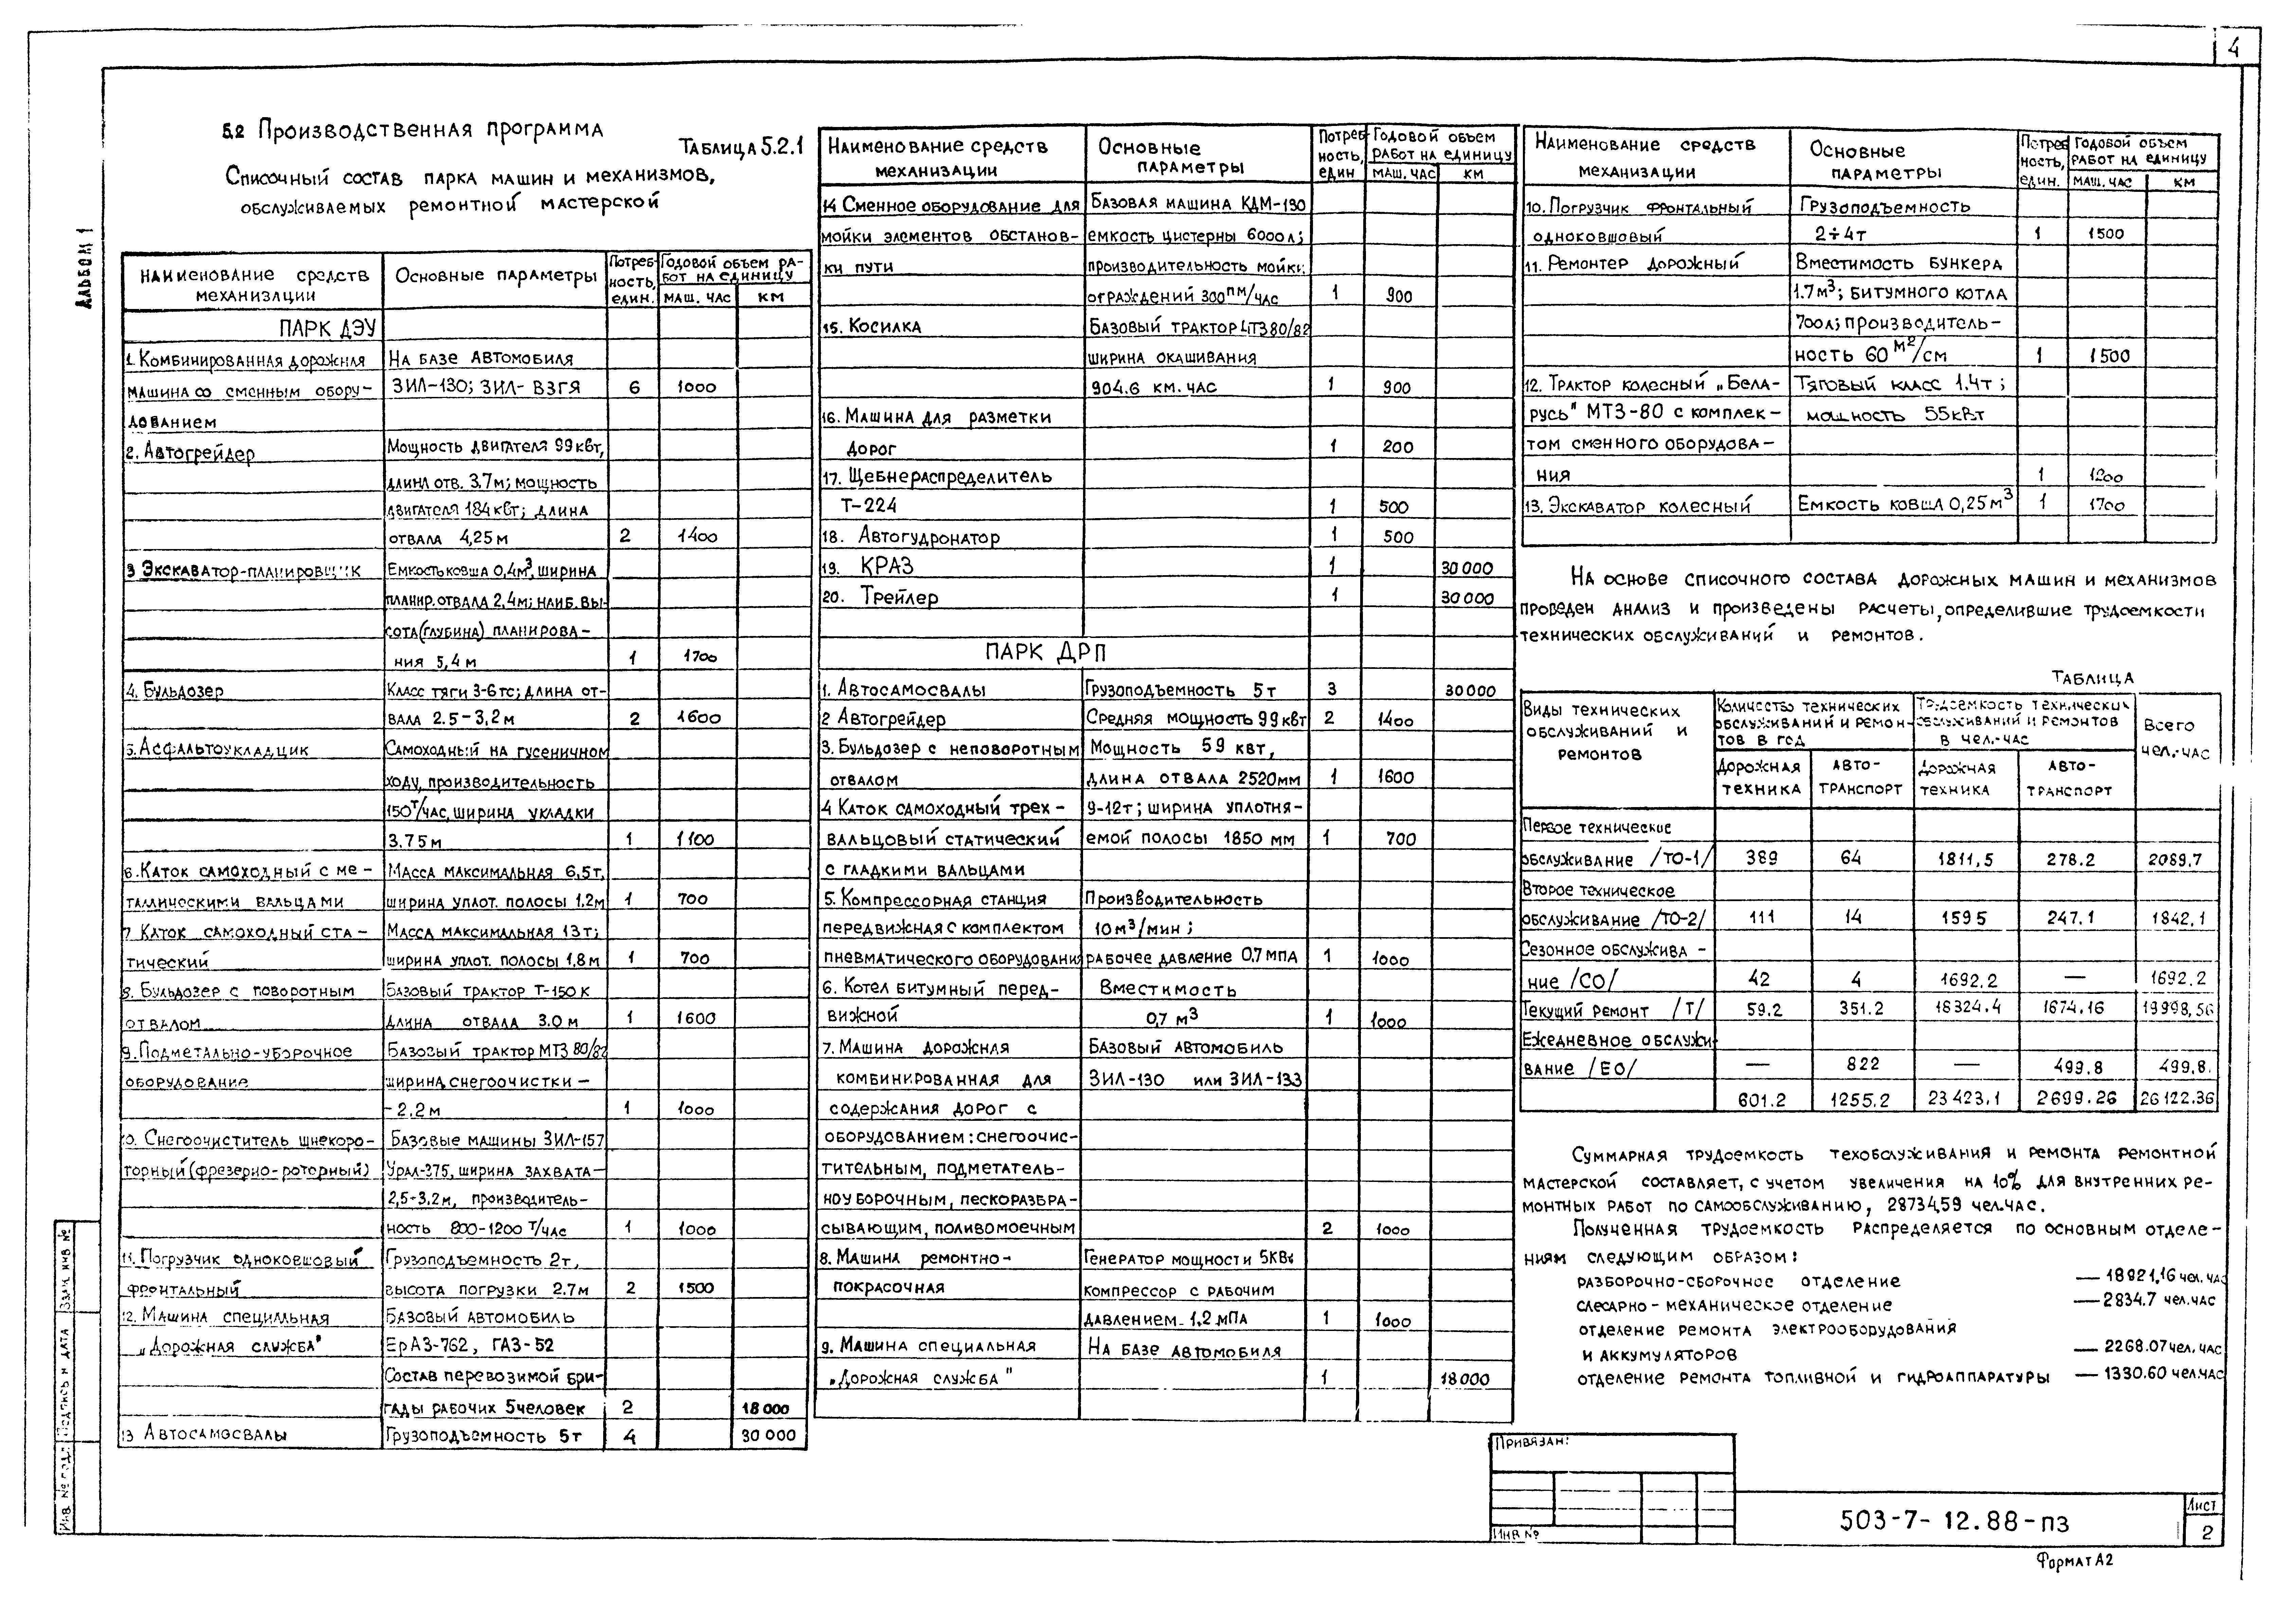 4
Альбом 1
5.2 Производственная программа
Таблица 5.2.1
Списочный состав парка машин и механизмов,
обслуживаемых ремонтной мастерской
Наименование средств механизации | Основные параметры | Потребность, един. | Годовой объем работ на единицу
маш. час | км
ПАРК ДЭУ
1. Комбинированная дорожная | На базе автомобиля
машина со сменным обору- | ЗИЛ-130; ЗИЛ- ВЗГЯ | 6 | 1000
дованием
2. Автогрейдер | Мощность двигателя 99 квт,
длина отв. 3.7м; мощность
двигателя 184 квт; длина
отвала 4,25 м | 2 | 1400
3 Экскаватор-планировщик | Емкость ковша 0,4м³, ширина
планир. отвала 2,4м; наиб. вы-
сота (глубина) планирова-
ния 5,4 м | 1 | 1700
4. Бульдозер | Класс тяги 3-6тс; длина от-
вала 2.5-3,2 м | 2 | 1600
5. Асфальтоукладчик | Самоходный на гусеничном
ходу, производительность
150 т/час, ширина укладки
3.75м | 1 | 1100
6. Каток самоходный с ме- | Масса максимальная 6,5т,
таллическими вальцами | ширина уплот. полосы 1.2м | 1 | 700
7 Каток самоходный ста- | Масса максимальная 13т;
тический | ширина уплот. полосы 1,8м | 1 | 700
8. Бульдозер с поворотным | Базовый трактор Т-150К
отвалом | длина отвала 3.0 м | 1 | 1600
9. Подметально-уборочное | Базовый трактор МТЗ 80/82
оборудование | ширина снегоочистки -
- 2.2 м | 1 | 1000
10. Снегоочиститель шнекоро- | Базовые машины ЗИЛ-157
торный (фрезерно-роторный) | Урал-375, ширина захвата-
2,5-3.2м, производитель-
ность 800-1200 т/час | 1 | 1000
11. Погрузчик одноковшовый | Грузоподъемность 2т,
фронтальный | высота погрузки 2.7м | 2 | 1500
12. Машина специальная | Базовый автомобиль
„Дорожная служба" | ЕрАЗ-762, ГАЗ-52
Состав перевозимой бри-
гады рабочих 5человек | 2 | 18 000
13 Автосамосвалы | Грузоподъемность 5т | 4 | 30 000
Наименование средств механизации | Основные параметры | Потребность, един | Годовой объем работ на единицу
маш. час | км
14 Сменное оборудование для | Базовая машина КДМ-130
мойки элементов обстанов- | емкость цистерны 6000л;
ки пути | производительность мойки
ограждений 300 пм/час | 1 | 900
15. Косилка | Базовый трактор МТЗ 80/82
ширина окашивания
904.6 км.час | 1 | 900
16. Машина для разметки
дорог | 1 | 200
17. Щебнераспределитель
Т-224 | 1 | 500
18. Автогудронатор | 1 | 500
19. КРАЗ | 1 | 30 000
20. Трейлер | 1 | 30 000
ПАРК ДРП
1. Автосамосвалы | Грузоподъемность 5т | 3 | 30 000
2 Автогрейдер | Средняя мощность 99 квт | 2 | 1400
3. Бульдозер с неповоротным | Мощность 59 квт,
отвалом | длина отвала 2520мм | 1 | 1600
4 Каток самоходный трех- | 9-12т; ширина уплотня-
вальцовый статический | емой полосы 1850 мм | 1 | 700
с гладкими вальцами
5. Компрессорная станция | Производительность
передвижная с комплектом | 10м³/мин;
пневматического оборудования | рабочее давление 0,7 МПА | 1 | 1000
6. Котел битумный перед- | Вместимость
вижной | 0,7 м³ | 1 | 1000
7. Машина дорожная | Базовый автомобиль
комбинированная для | ЗИЛ-130 или ЗИЛ-133
содержания дорог с
оборудованием: снегоочис-
тительным, подметатель-
ноуборочным, пескоразбра-
сывающим, поливомоечным | 2 | 1000
8. Машина ремонтно- | Генератор мощности 5КВт
покрасочная | компрессор с рабочим
давлением 1,2 мПА | 1 | 1000
9. Машина специальная | На базе автомобиля
„Дорожная служба" | 1 | 18 000
Наименование средств механизации | Основные параметры | Потребность, един. | Годовой объем работ на единицу
маш. час | км
10. Погрузчик фронтальный | Грузоподъемность
одноковшовый | 2÷4т | 1 | 1500
11. Ремонтер дорожный | Вместимость бункера
1.7м³; битумного котла
700л; производитель-
ность 60 м²/см | 1 | 1500
12. Трактор колесный „Бела- | Тяговый класс 1.4т;
русь" МТЗ-80 с комплек- | мощность 55квт
том сменного оборудова-
ния | 1 | 1200
13. Экскаватор колесный | Емкость ковша 0,25м³ | 1 | 1700
На основе списочного состава дорожных машин и механизмов
проведен анализ и произведены расчеты, определившие трудоемкости
технических обслуживаний и ремонтов.
Таблица
Виды технических обслуживаний и ремонтов | Количество технических обслуживаний и ремонтов в год | Трудоемкость технических обслуживаний и ремонтов в чел.-час | Всего чел.-час
Дорожная техника | Авто-транспорт | Дорожная техника | Авто-транспорт
Первое технические
обслуживание /ТО-1/ | 389 | 64 | 1811,5 | 278.2 | 2089,7
Второе техническое
обслуживание /ТО-2/ | 111 | 14 | 1595 | 247.1 | 1842,1
Сезонное обслужива-
ние /СО/ | 42 | 4 | 1692.2 | — | 1692.2
Текущий ремонт /Т/ | 59.2 | 351.2 | 18324.4 | 1674.16 | 19998,56
Ежедневное обслужи
вание /ЕО/ | — | 822 | — | 499.8 | 499,8.
601.2 | 1255.2 | 23 423.1 | 2699.26 | 26 122.36
Суммарная трудоемкость техобслуживания и ремонта ремонтной
мастерской составляет, с учетом увеличения на 10% для внутренних ре-
монтных работ по самообслуживанию, 28734,59 чел.час.
Полученная трудоемкость распределяется по основным отделе-
ниям следующим образом:
разборочно-сборочное отделение — 18921,16 чел. час
слесарно-механическое отделение — 2834.7 чел.час
отделение ремонта электрооборудования
и аккумуляторов — 2268.07 чел. час
отделение ремонта топливной и гидроаппаратуры — 1330.60 чел.час
Привязан:
Инв №
503-7-12.88-пз
Лист
2
Формат А2
Взам. инв №
Подпись и дата
Инв. № подл.